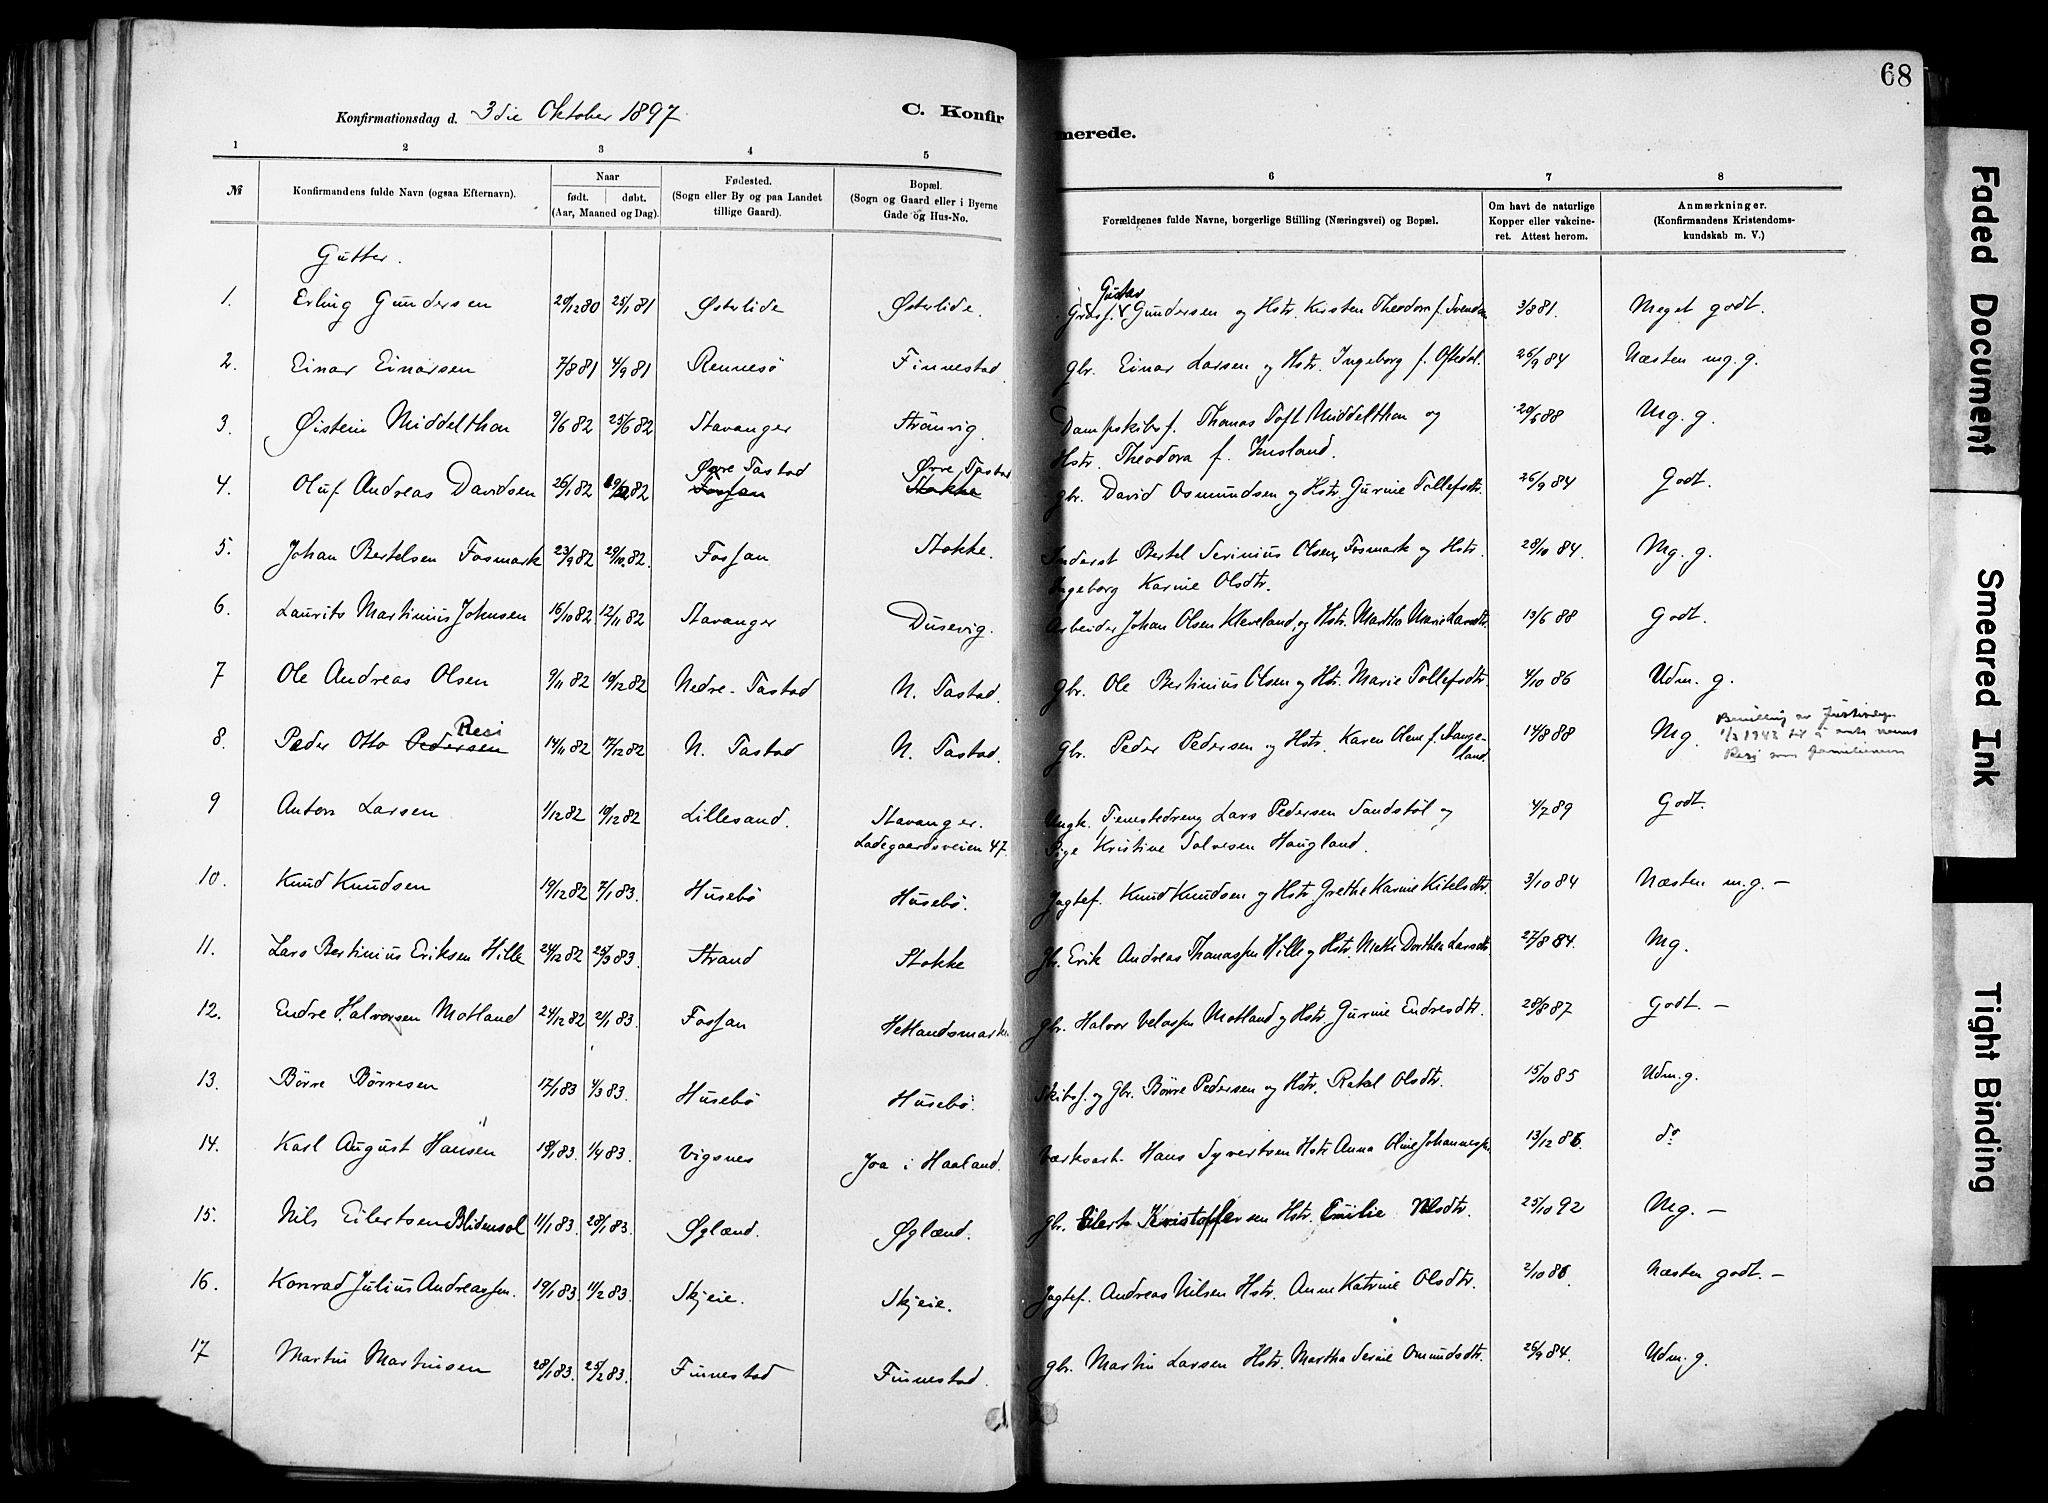 68
Konfirmationsdag d. 3die Oktober 1897.
C. Konfirmerede.
1 2 3 4 5 6 7 8
№ Konfirmandens fulde Navn (ogsaa Efternavn). Naar født. døbt. (Aar, Maaned og Dag). Fødested. (Sogn eller By og paa Landet tillige Gaard). Bopæl. (Sogn og Gaard eller i Byerne Gade og Hus-No. Forældrenes fulde Navne, borgerlige Stilling (Næringsvei) og Bopæl. Om havt de naturlige Kopper eller vakcineret. Attest herom. Anmærkninger. (Konfirmandens Kristendomskundskab m. V.)
Gutter.
1. Erling Gundersen 20/12 80 25/1 81 Østerlide Østerlide. Gustav Gundersen og Hstr. Kirsten Theodora f. 3/8 81. Meget godt.
2. Einar Einarsen 7/8 81 4/9 81 Rennesø Finnestad Gbr. Einar Larsen og Hstr. Ingeborg f. Oftedal. 26/9 84 Næsten mg. g.
3. Øistein Middelthon 9/6 82 25/6 82 Stavanger Strømvig. Dampskibsf. Thomas Toft Middelthon og 20/6 88 Mg. g.
Hstr. Theodora f.
4. Oluf Andreas Davidsen 26/1 82 82 Øvre Tastad Fossan Øvre Tastad Stokke Gbr. David Osmundsen og Hstr. Gurine Tollefsdtr. 26/9 84 Godt.
5. Johan Bertelsen Fosmark 23/9 82 29/10 82. Fossan Stokke. Inderst Bertel Serinius Olsen Fosmark og Hstr. 28/10 84. Mg. g.
Ingeborg Karine Olsdtr.
6. Laurits Martinius Johnsen 16/10 82 12/11 82 Stavanger Dusevig. Arbeider Johan Olsen Kleveland, og Hstr. Martha Marie Larsdtr. 13/6 88 Godt.
7 Ole Andreas Olsen 9/11 82 19/12 82 Nedre-Tastad N. Tastad. Gbr. Ole Bertinius Olsen og Hstr. Marie Tollefsdtr. 4/10 86 Udm. g.
8. Peder Otto Pedersen Resi 14/11 82 17/12 82 N. Tastad N. Tastad. Gbr. Peder Pedersen og Hstr. Karen Oline f. Haugeland. 14/8 88 Mg. Bevilling av Justisdep. 1/3 1943 til å
Resi som familienavn
9 Anton Larsen 1/12 82 19/12 82 Lillesand. Stavanger. Ungk. Tjenestedreng Lars Pedersen Sandstøl og 4/7 89 Godt.
Ladegaardsveien 47. Pige Kristine Salvesen Haugland.
10. Knud Knudsen 19/12 82 7/1 83. Husebø Husebø. Jagtef. Knud Knudsen og Hstr. Grethe Karine Kitelsdtr. 3/10 84 Næsten m.g. –
11. Lars Bertinius Eriksen Hille 24/12 82 25/3 83. Strand Stokke Gbr. Erik Andreas Thomassen Hille og Hstr. Mette Dorthea Larsdtr. 27/8 84. Mg.
12. Endre Halvorsen Motland 24/12 82 2/1 83. Fossan Hetlandsmarken Gbr. Halvor Velassen Motland og Hstr. Gurine Endresdtr. 28/8 87 Godt. –
13. Børre Børresen 17/1 83 4/3 83. Husebø Husebø. Skibsf. og Gbr. Børre Pedersen og Hstr. Rakel Olsdtr. 15/10 85 Udm. g.
14. Karl August Hansen 18/1 83. 1/4 83. Vigsnes Joa i Haaland. Værksarb. Hans Syvertsen Hstr. Anna Oline Johannesdtr. 13/12 86. do
15. Nils Eilertsen Blidensol 11/1 83. 28/1 83. Øglænd. Øglænd. Gbr. Eilert Kristoffersen Hstr. Emilie Nilsdtr. 25/10 92 Mg. –
16. Konrad Julius Andreassen. 19/1 83. 11/2 83. Skjeie. Skjeie. Jagtef. Andreas Nilsen Hstr. Anne Katrine Olsdtr. 2/10 86. Næsten godt. –
17 Martin Martinsen 28/1 83. 25/2 83. Finnestad Finnestad. Gbr. Martin Larsen Hstr. Martha Serine Omundsdtr. 26/9 84. Udm. g.
Faded Document
Smeared Ink
Tight Binding